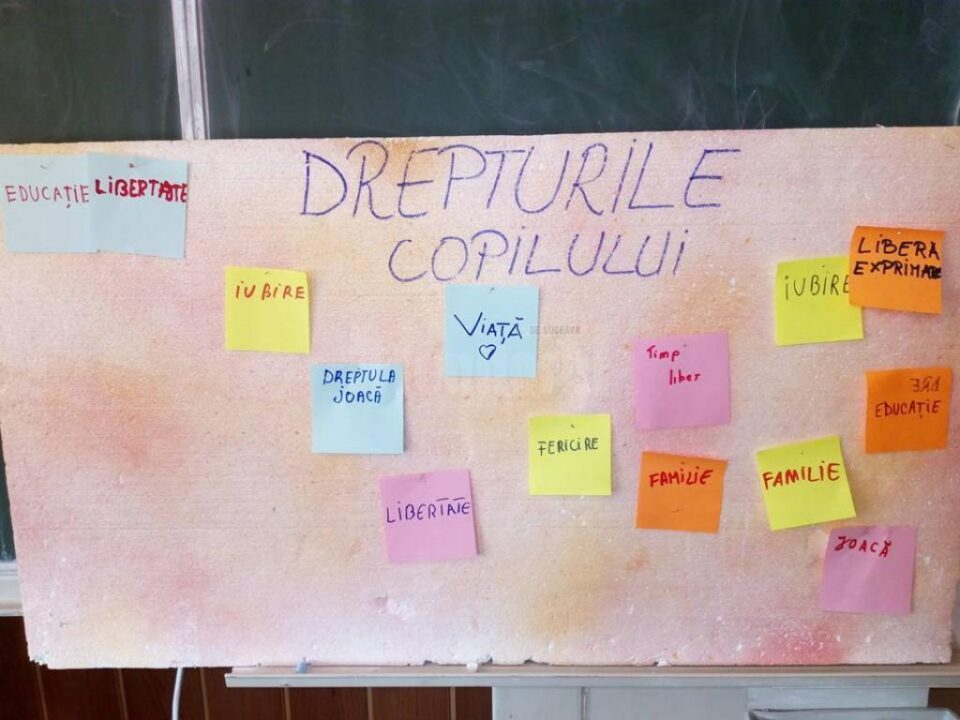 DREPTURILE
COPILULUI
EDUCAȚIE
LIBERTATE
IUBIRE
VIAȚĂ
DE SUCEAVA
DREPTUL A
JOACĂ
LIBERTATE
FERICIRE
Timp
liber
FAMILIE
IUBIRE
LIBERA
EXPRIMARE
EDUCAȚIE
FAMILIE
JOACĂ